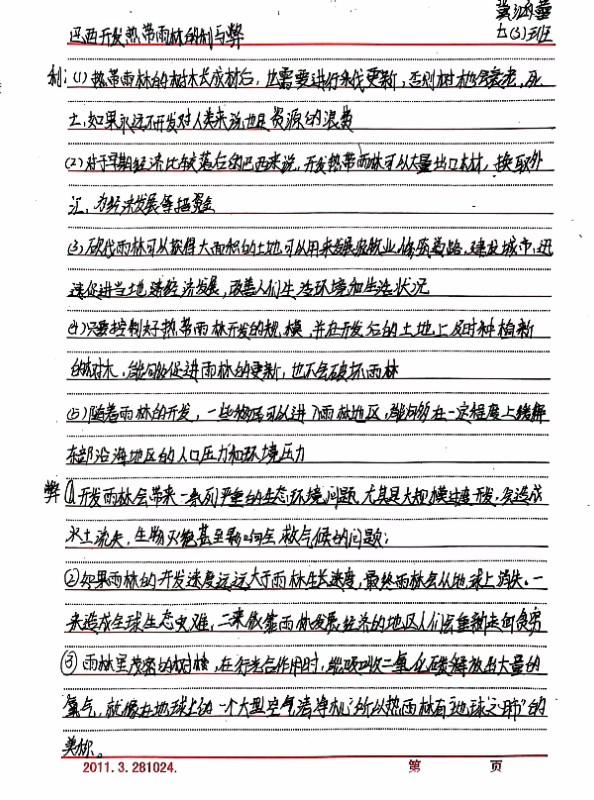 黄涵蕾
七(3)班
巴西开发热带雨林的利与弊
利:(1)热带雨林的树木长成材后,也需要进行采伐更新,否则树木也会衰老,死
亡,如果永远不开发对人类来说也是资源的浪费
(2)对于早期经济比较落后的巴西来说,开发热带雨林可以大量出口木材,换取外
汇,为经济发展筹措资金
(3)砍伐雨林可以获得大面积的土地可以用来发展农牧业,修筑道路,建设城市,迅
速促进当地 经济发展,改善人们生活环境和生活状况
(4)只要控制好热带雨林开发的规模,并在开发后的土地上及时种植新
的树木,能够促进雨林的更新,也不会破坏雨林
(5)随着雨林的开发,一些 可以进了雨林地区,能够在一定程度上缓解
东部沿海地区的人口压力和环境压力
弊①开发雨林会带来一系列严重的生态环境问题,尤其是大规模过度开发,会造成
水土流失,生物灭绝甚至影响全球气候的问题;
②如果雨林的开发速度远远大于雨林生长速度,最终雨林会从地球上消失。一
来造成全球生态灾难,二来依靠雨林发展经济的地区人们会重新走向贫穷
③雨林里茂密的树林,在行光合作用时,能吸收二氧化碳释放出大量的
氧气,就像在地球上的一个大型"空气清净机"所以热雨林有"地球之肺"的
美称。
2011.3.281024.
第 页